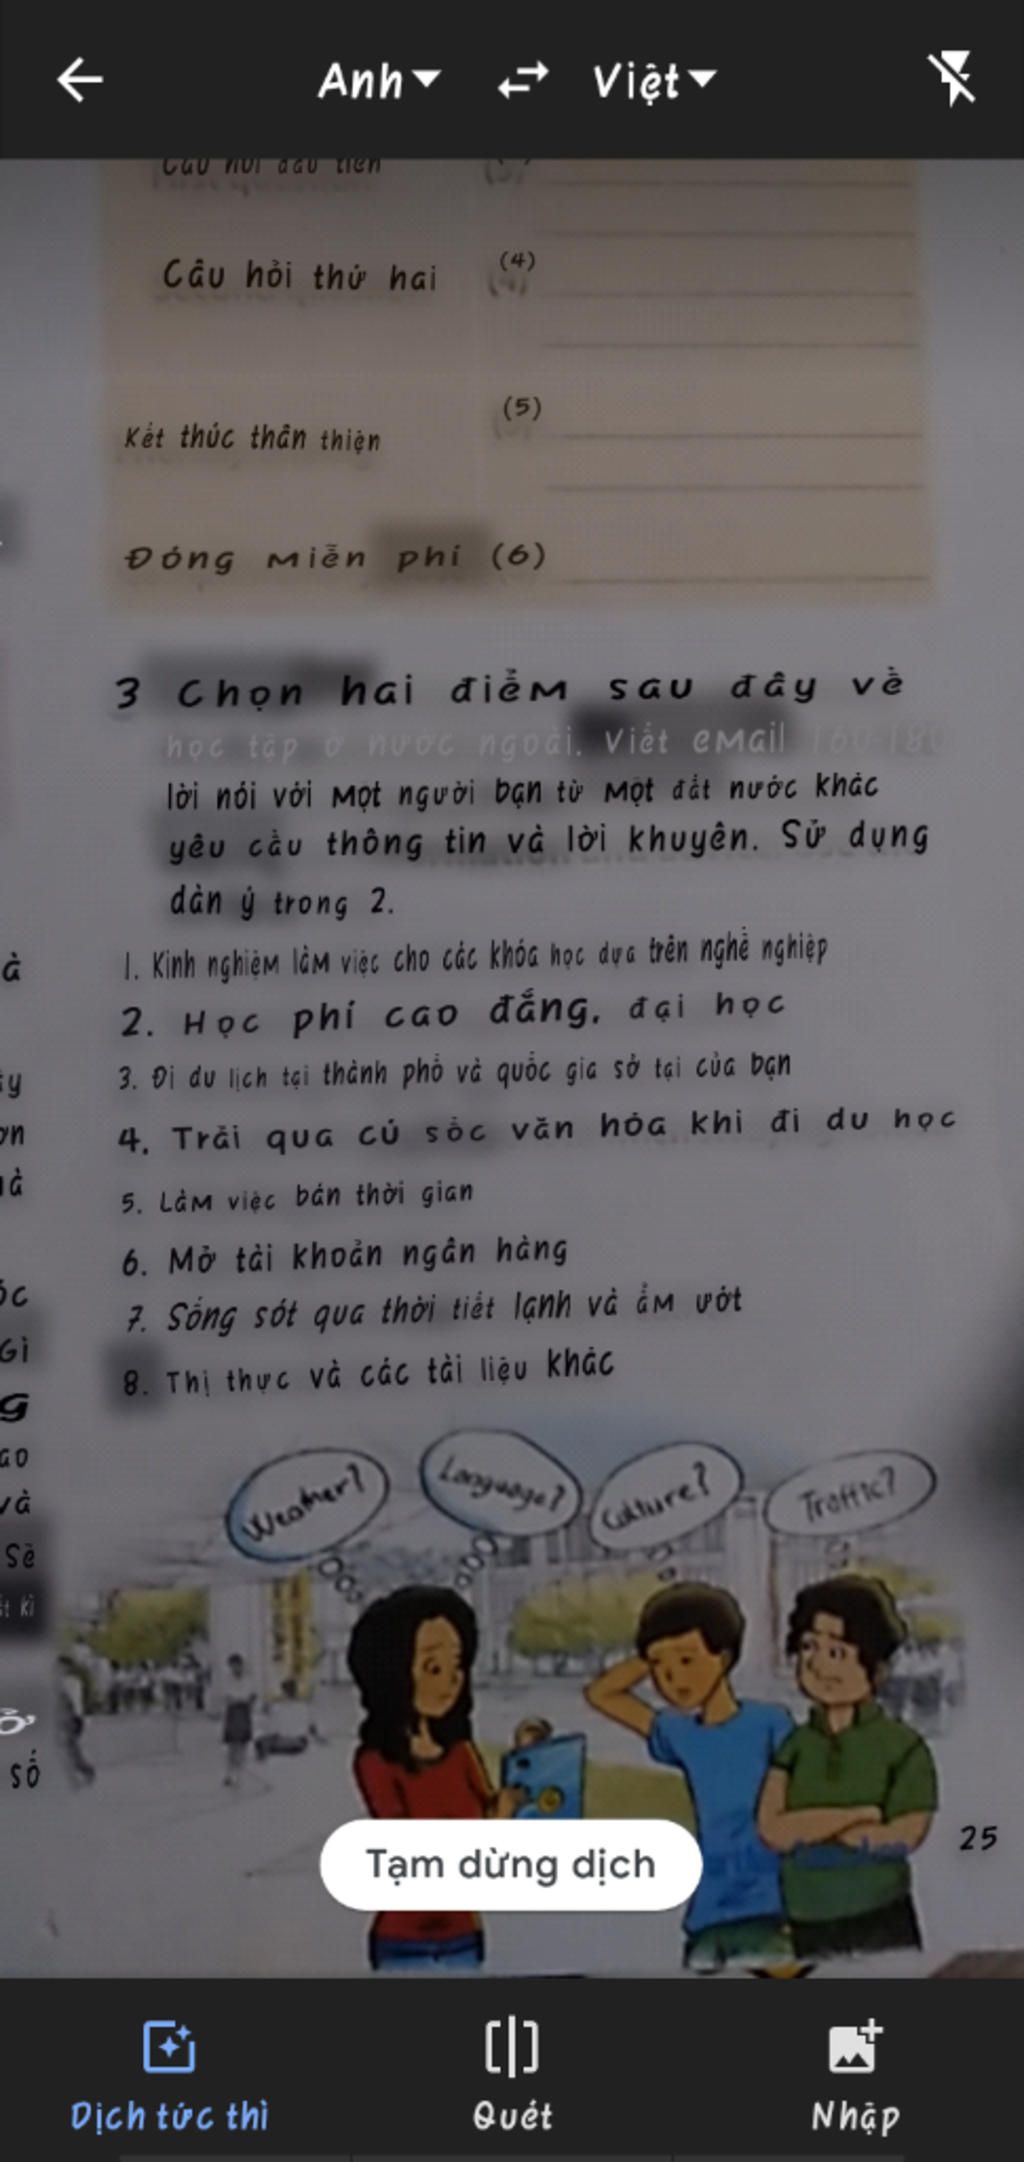 Anh Việt
Câu hỏi đầu tiên
Câu hỏi thứ hai (4)
Kết thúc thân thiện (5)
Đóng miễn phí (6)
3 Chọn hai điểm sau đây về
học tập ở nước ngoài. Viết email 160-180
lời nói với một người bạn từ một đất nước khác
yêu cầu thông tin và lời khuyên. Sử dụng
dàn ý trong 2.
1. Kinh nghiệm làm việc cho các khóa học dựa trên nghề nghiệp
2. Học phí cao đẳng, đại học
3. Đi du lịch tại thành phố và quốc gia sở tại của bạn
4. Trải qua cú sốc văn hóa khi đi du học
5. Làm việc bán thời gian
6. Mở tài khoản ngân hàng
7. Sống sót qua thời tiết lạnh và ẩm ướt
8. Thị thực và các tài liệu khác
Weather? Language? Culture? Traffic?
số
25
Tạm dừng dịch
Dịch tức thì Quét Nhập